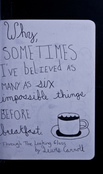 Why,
SOMETIMES
I've believed as
many as six
impossible things
BEFORE
breakfast
Through The Looking Glass
by Lewis Carroll